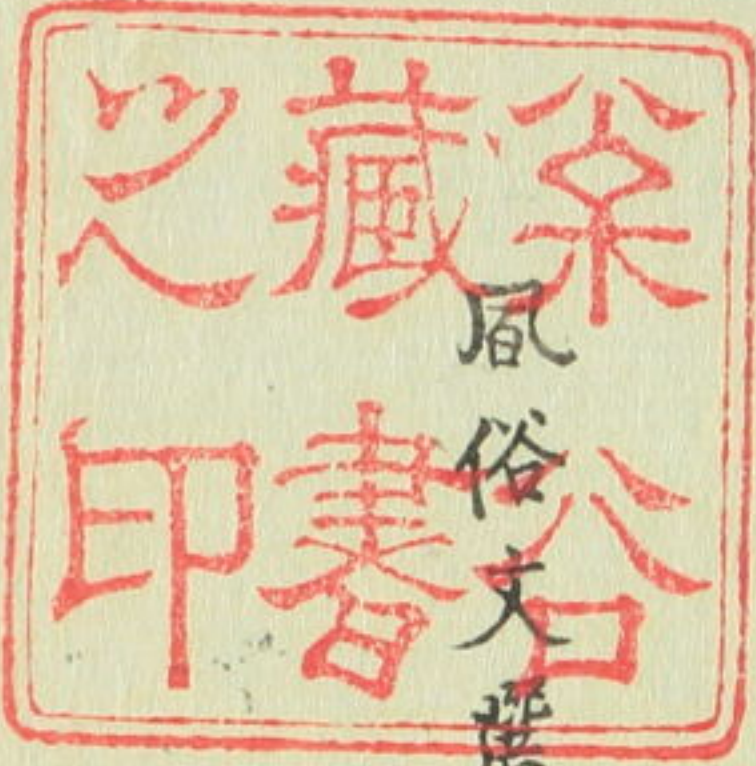 谷
藏書
之印
風俗文